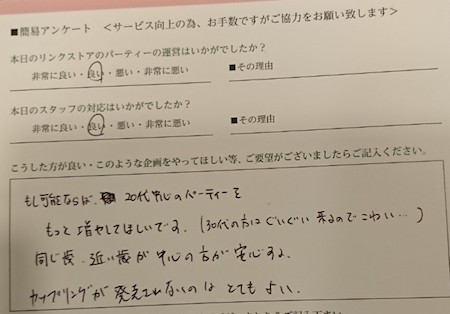 ■簡易アンケート ＜サービス向上の為、お手数ですがご協力をお願い致します＞
本日のリンクストアのパーティーの運営はいかがでしたか？
非常に良い・良い・悪い・非常に悪い ■その理由
本日のスタッフの対応はいかがでしたか？
非常に良い・良い・悪い・非常に悪い ■その理由
こうした方が良い・このような企画をやってほしい等、ご要望がございましたらご記入ください。
もし可能ならば、20代中心のパーティーを
もっと増やしてほしいです。(30代の方はぐいぐい来るのでこわい…)
同じ歳、近い歳が中心の方が安心する。
カップリングが発表されないのはとてもよい。